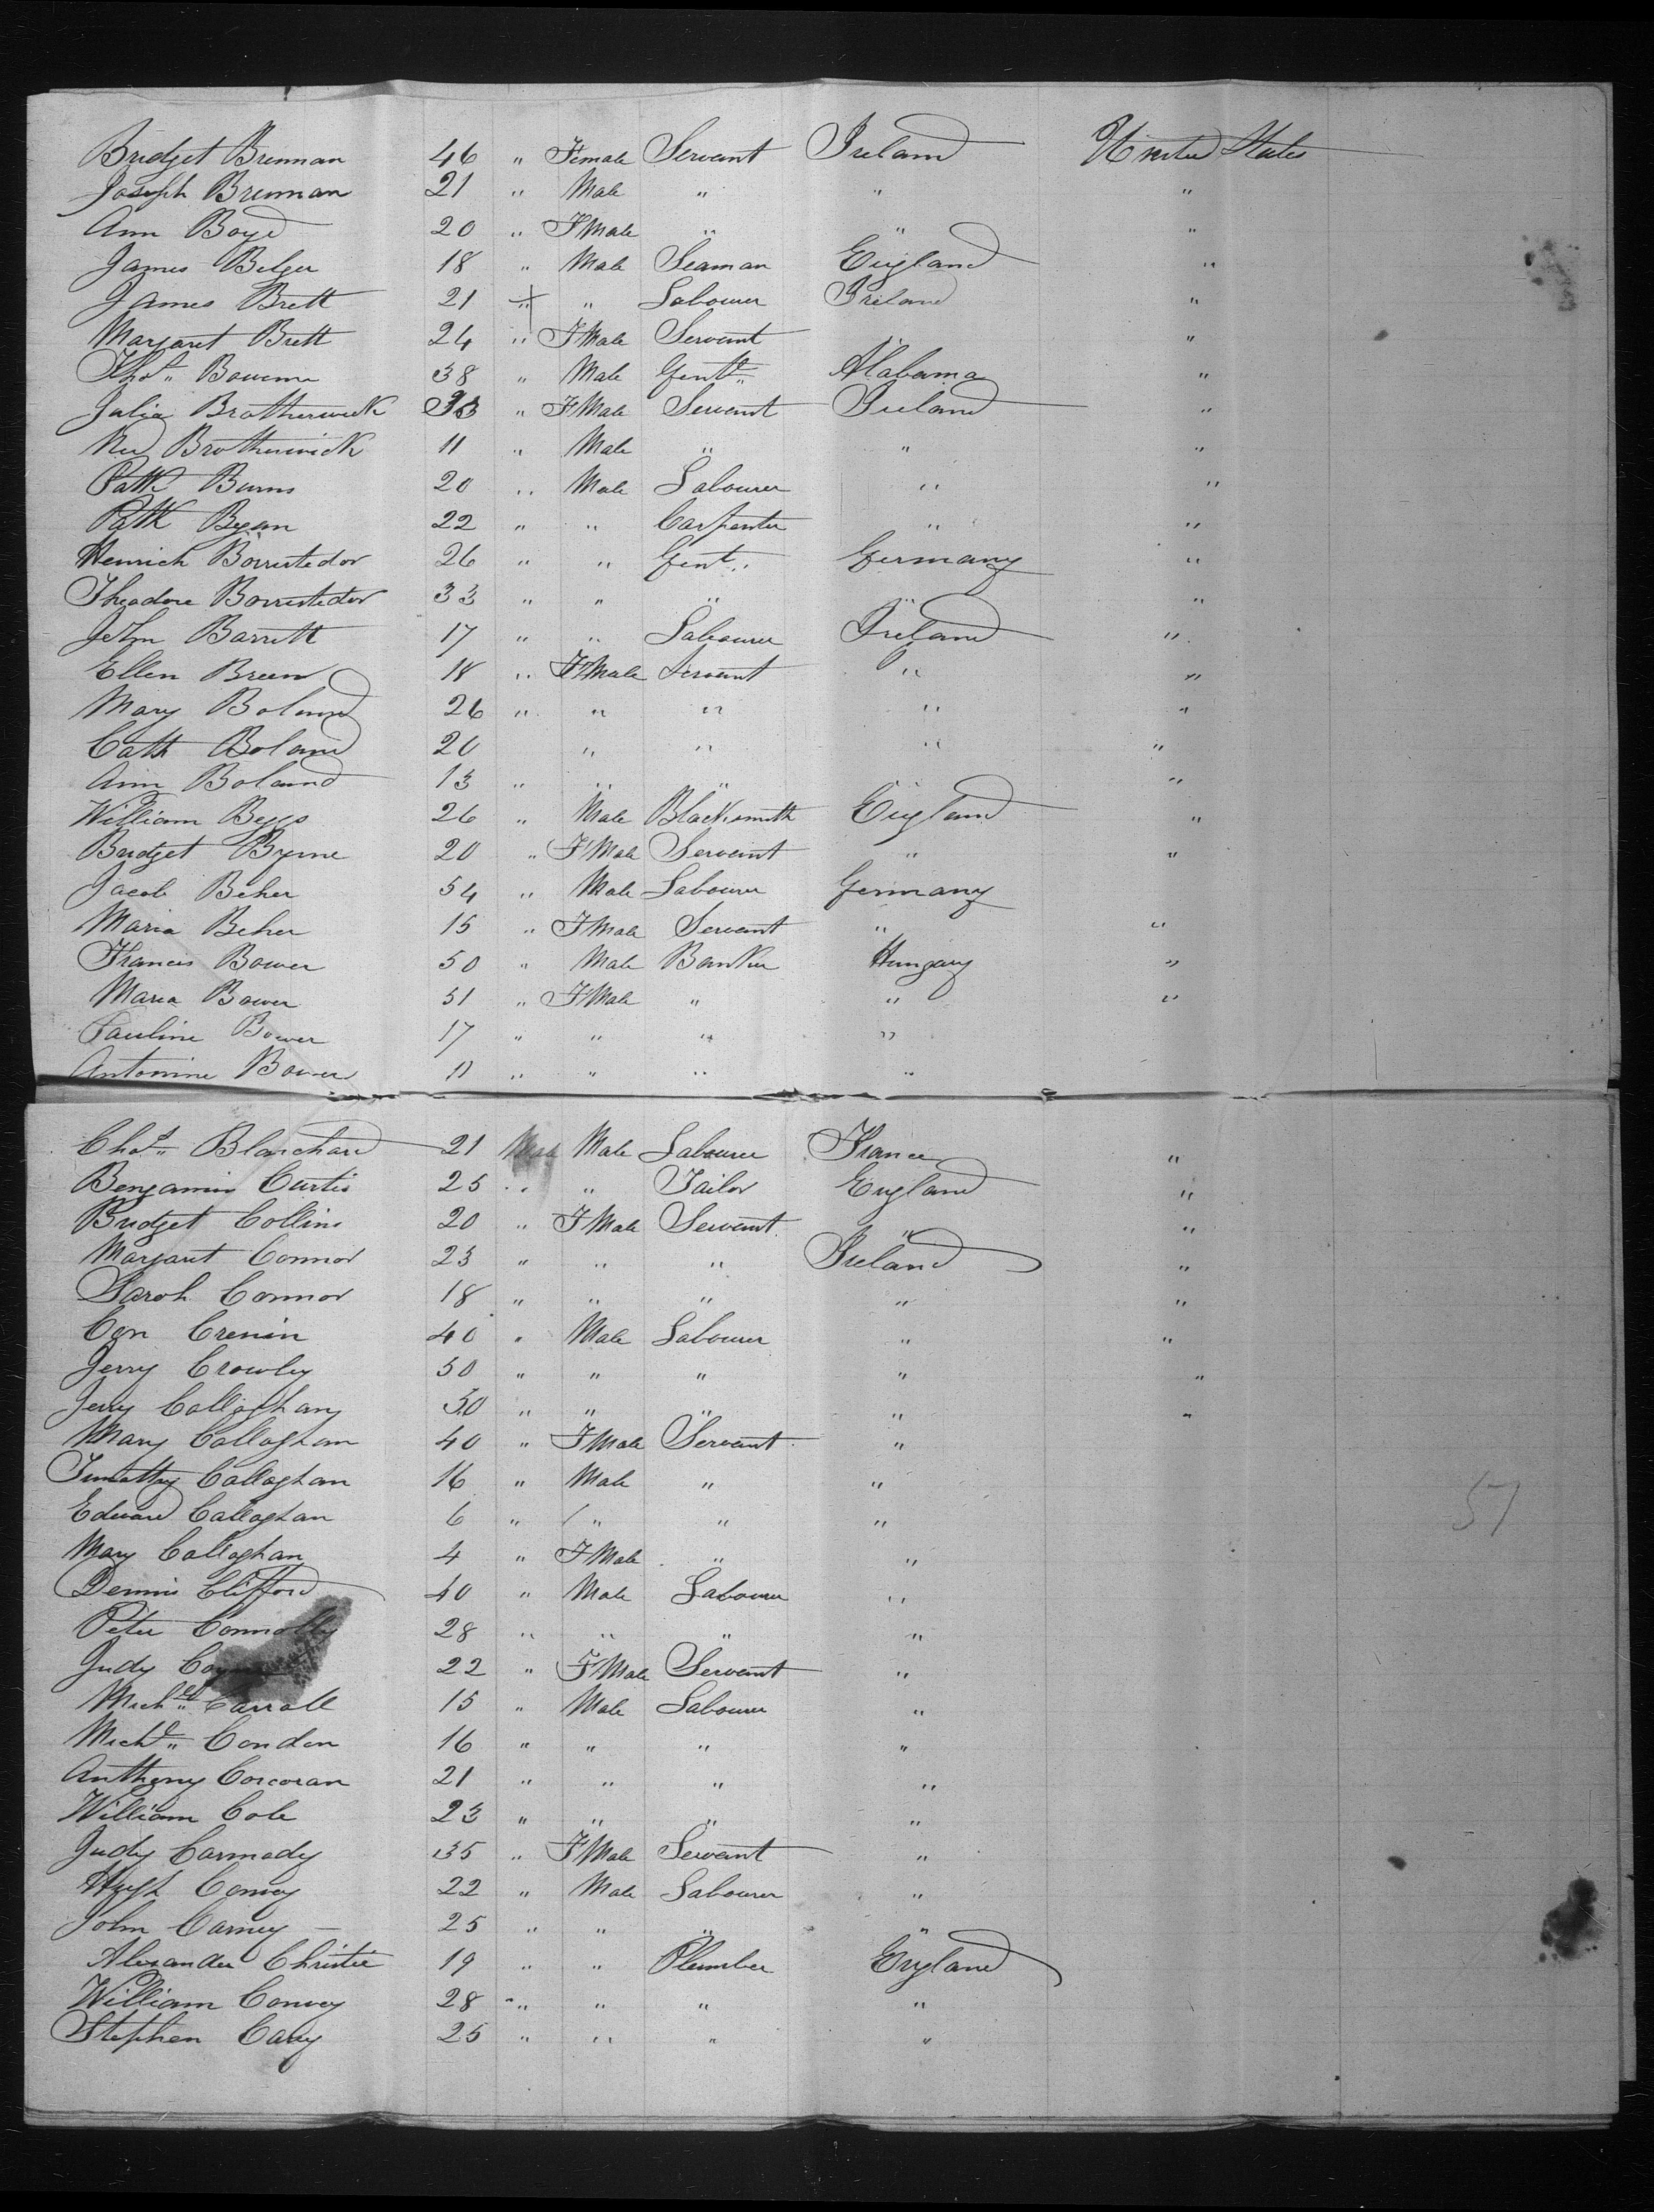 Bridget Brennan 46 " Female Servant Ireland United States
Joseph Brennan 21 " Male " " "
Ann Boyd 20 " FMale " " "
James Belger 18 " Male Seaman England "
James Brett 21 " " Labourer Ireland "
Margaret Brett 24 " FMale Servant " "
Thos. 38 " Male Gentn. Alabama "
Julia Brotherwick 33 " FMale Servant Ireland "
Brotherwick 11 " Male " " "
Patk Burns 20 " Male Labourer " "
Patk Bryan 22 " " Carpenter " "
Henrich Borrestedor 26 " " Gent. Germany "
Theadore Borrestedor 33 " " " " "
John Barrett 17 " " Labourer Ireland "
Ellen Breen 18 " FMale Servant " "
Mary Boland 26 " " " " "
Cath Boland 20 " " " "
Ann Boland 13 " " " "
William Beggs 26 " Male Blacksmith England "
Bridget Byrne 20 " FMale Servant " "
Jacob Beher 54 " Male Labourer Germany
Maria Beher 15 " FMale Servant " "
Francis Bower 50 " Male Banker Hungary "
Maria Bower 51 " FMale " " "
Pauline Bower 17 " " " "
Antonine Bower 11 " " " "
Chas. Blanchard 21 Male Male Labourer France "
Benjamin Curtis 25 " " Tailor England "
Bridget Collins 20 " FMale Servant " "
Margaret Connor 23 " " " Ireland "
Sarah Connor 18 " " " " "
Con Crenin 40 " Male Labourer " "
Jerry Crowley 50 " " " " "
Jerry Callaghan 50 " " " " "
Mary Callaghan 40 " FMale Servant "
Timothy Callaghan 16 " Male " "
Edward Callaghan 6 " " " "
Mary Callaghan 4 " FMale " "
Dennis Clifford 40 " Male Labourer "
Peter Connolly 28 " " " "
Judy 22 " FMale Servant "
Michl. Carroll 15 " Male Labourer "
Michl. Condon 16 " " " "
Anthony Corcoran 21 " " " "
William Cole 23 " " " "
Judy Carmody 35 " FMale Servant "
Hugh Convey 22 " Male Labourer "
John Carney 25 " " " "
Alexander Christie 19 " " Plumber England
William Convey 28 " " " "
Stephen Cary 25 " " " "
57